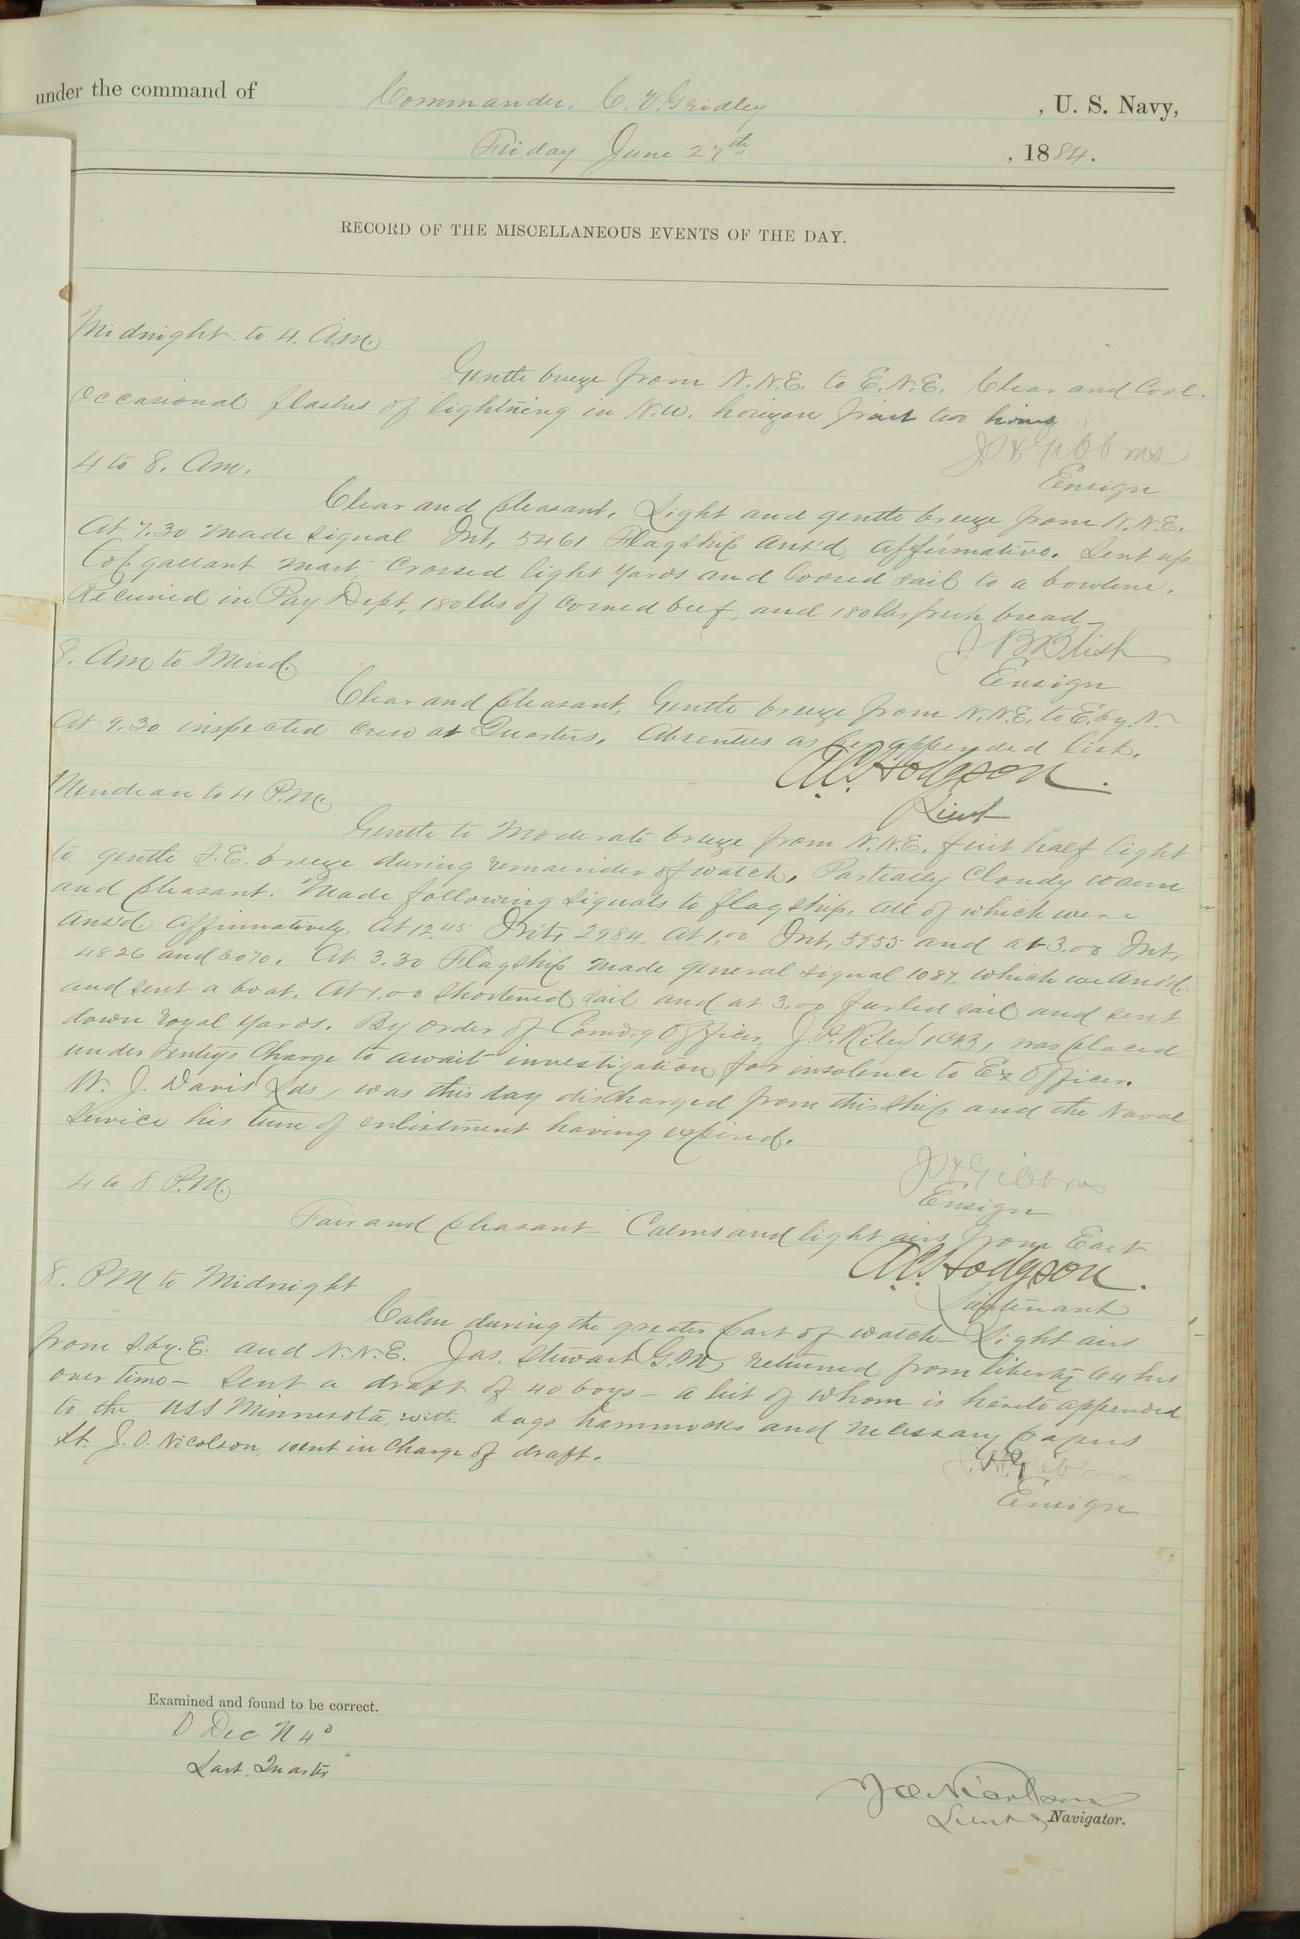 under the command of Commander, C. V. Gridley, U. S. Navy,
Friday June 27th, 1884.
RECORD OF THE MISCELLANEOUS EVENTS OF THE DAY.
Midnight to 4. A.M.
Gentle breeze from N.N.E. to E.N.E. Clear and Cool.
Occasional flashes of lightning in N.W. horizon first two hours
J. H. Gibbons
Ensign
4 to 8. Am.
Clear and pleasant. Light and gentle breeze from N.N.E.
At 7.30 made signal Int, 5461 Flagship Ans'd affirmative. Sent up
top gallant mast crossed light yards and loosed sail to a bowline.
Received in Pay Dept, 180 lbs of corned beef, and 180 lbs fresh bread—
J B Blish
Ensign
8. Am to Merid.
Clear and pleasant, Gentle breeze from N.N.E. to E. by. N.
At 9.30 inspected crew at Quarters. Absentees as per appended list.
A.C. Hodgson.
Lieut
Meridian to 4 P.M.
Gentle to Moderate breeze from N.N.E. first half light
to gentle S.E. breeze during remainder of watch. Partially Cloudy warm
and pleasant. Made following signals to flagship, all of which were
ans'd affirmatively. At 12.45 Int, 2984. At 1.00 Int, 5955 and at 3.00 Int,
4826 and 6070. At 3.30 Flagship made general signal 1087, which we Ans'd.
and sent a boat. At 1.00 shortened sail and at 3.00 furled sail and sent
down royal yards. By order of Comd'g Officer, J. P. Riley, was placed
under sentry's charge to await investigation for insolence to Ex Officer.
W. J. Davis Lds, was this day discharged from this ship and the Naval
service his time of enlistment having expired.
J H Gibbons
Ensign
4 to 8 P.M.
Fair and pleasant Calms and light airs from East
A.C. Hodgson.
Lieutenant
8. P.M to Midnight
Calm during the greater part of watch— Light airs
from S. by. E. and N.N.E. Jas. Stewart G.M, returned from liberty 64 hrs
over time— Sent a draft of 40 boys— a list of whom is hereto appended
to the USS Minnesota, with bags hammocks and necessary papers
Lt. J. O. Nicolson, went in charge of draft.
J. H. Gibbons
Ensign
Examined and found to be correct.
Dec N 4°
Last Quarter
J O Nicolson
Lieut, Navigator.